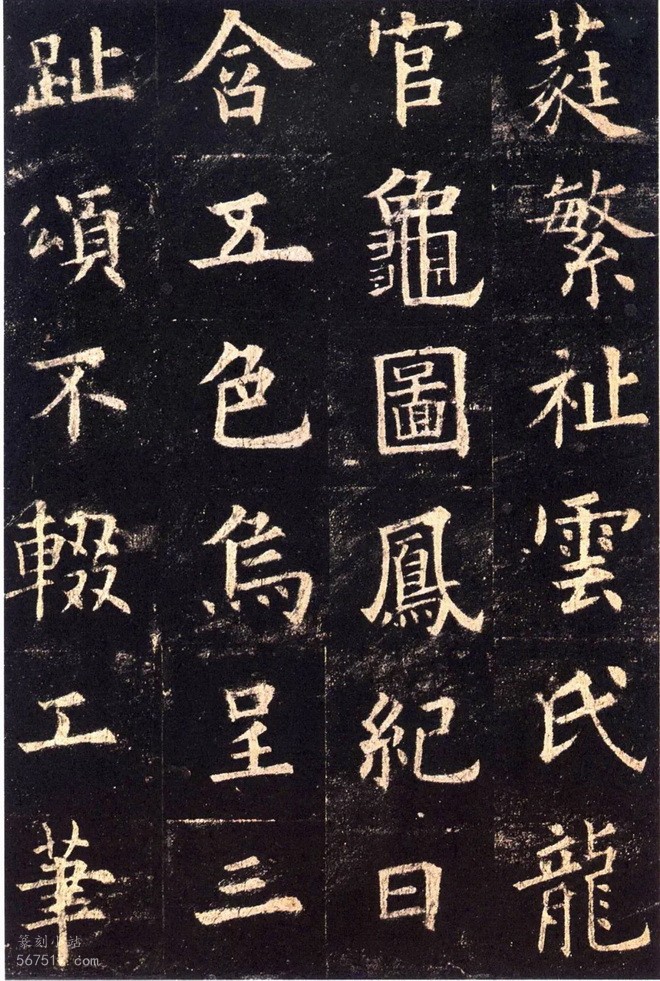 蕤繁祉雲氏龍
官龜圖鳳紀日
含五色烏呈三
趾頌不輟工筆
篆刻小站